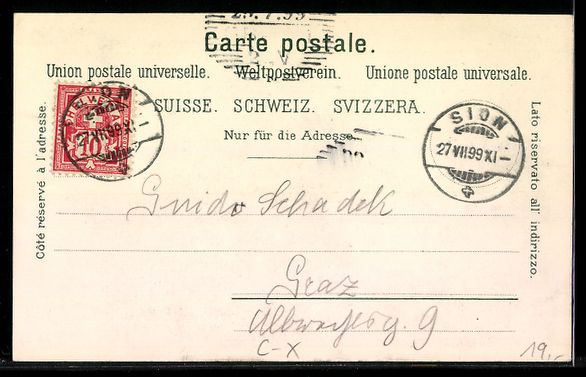 29.7.99
Carte postale.
Union postale universelle. Weltpostverein. Unione postale universale.
SUISSE. SCHWEIZ. SVIZZERA.
Nur für die Adresse.
Côté réservé à l'adresse.
Lato riservato all' indirizzo.
SION
27 VII 99 XI
10
SION
27 VII 99 XI
Guido Schadek
Graz
9
C-X
19,-